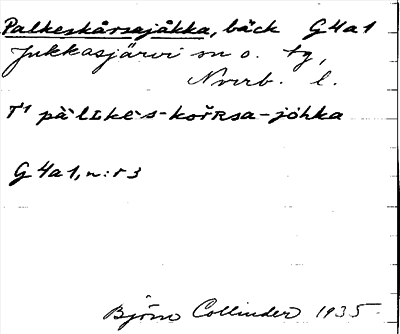 Palkeskårsajåkka, bäck G4a1
Jukkasjärvi sn o. tg,
Nverb. l.
T¹ pàlᴌke·s-kořʀsa-jóhka
G4a1, n:r 3
Björn Collinder 1935